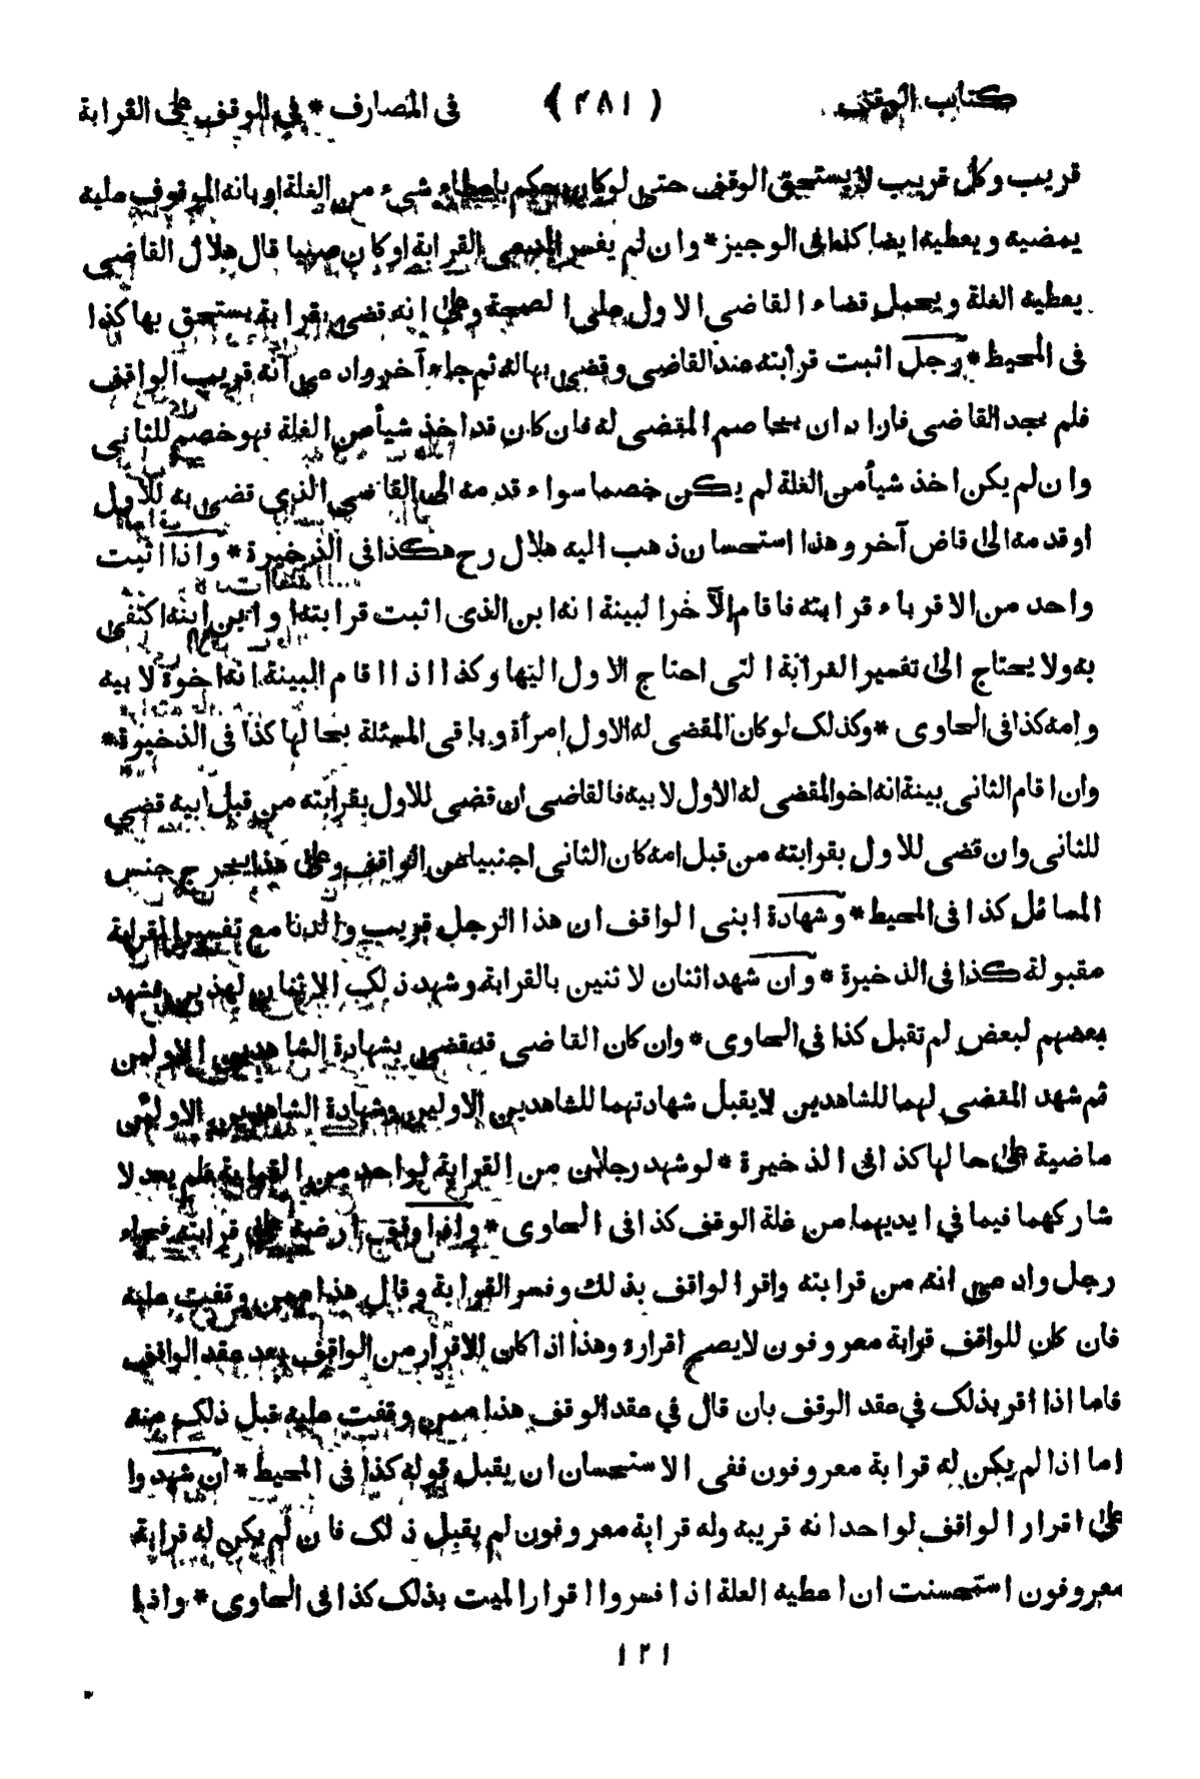 كتاب الوقف ( ٣٨١ ) فى المصارف * في الوقف على القرابة
قريب وكل قريب لا يستحق الوقف حتى لو كان حكم باعطاء شىء من الغلة او بانه الموقوف عليه
يمضيه ويعطيه ايضا كذا فى الوجيز * وان لم يفسر المدعى القرابة او كان صبيا قال هلال القاضى
يعطيه الغلة ويحمل قضاء القاضى الاول على الصحة وعلى انه قضى بقرابة يستحق بها كذا
فى المحيط * رجل اثبت قرابته عند القاضى وقضى بها له ثم جاء آخر وادعى انه قريب الواقف
فلم يجد القاضى فاراد ان يخاصم المقضى له فان كان قد اخذ شيأ من الغلة فهو خصم للثانى
وان لم يكن اخذ شيأ من الغلة لم يكن خصما سواء قدمه الى القاضى الذى قضى به للاول
او قدمه الى قاض آخر وهذا استحسان ذهب اليه هلال رح هكذا فى الذخيرة * واذا اثبت
واحد من الاقرباء قرابته فاقام الآخر البينة انه ابن الذى اثبت قرابته او ابن ابنه اكتفى
به ولا يحتاج الى تفسير القرابة التى احتاج الاول اليها وكذا اذا اقام البينة انه اخوه لابيه
وامه كذا فى الحاوى * وكذلك لو كان المقضى له الاول امرأة وباقى المسئلة بحالها كذا فى الذخيرة *
وان اقام الثانى بينة انه اخو المقضى له الاول لابيه فالقاضى ان قضى للاول بقرابته من قبل ابيه قضى
للثانى وان قضى للاول بقرابته من قبل امه كان الثانى اجنبيا عن الواقف وعلى هذا يخرج جنس
المسائل كذا فى المحيط * وشهادة ابنى الواقف ان هذا الرجل قريب والدنا مع تفسير القرابة
مقبولة كذا فى الذخيرة * وان شهد اثنان لاثنين بالقرابة وشهد ذلك الاثنان لهذين فشهد
بعضهم لبعض لم تقبل كذا فى الحاوى * وان كان القاضى قد قضى بشهادة الشاهدين الاولين
ثم شهد المقضى لهما للشاهدين لا يقبل شهادتهما للشاهدين الاولين وشهادة الشاهدين الاولين
ماضية على حالها كذا فى الذخيرة * لو شهد رجلان من القرابة لواحد من القرابة فلم يعد لا
شاركهما فيما في ايديهما من غلة الوقف كذا فى الحاوى * واذا وقف ارضه على قرابته فجاء
رجل وادعى انه من قرابته واقر الواقف بذلك وفسر القرابة وقال هذا ممن وقفت عليه
فان كان للواقف قرابة معروفون لا يصح اقراره وهذا اذا كان الاقرار من الواقف بعد عقد الواقف
فاما اذا اقر بذلك في عقد الوقف بان قال في عقد الوقف هذا ممن وقفت عليه قبل ذلك منه
اما اذا لم يكن له قرابة معروفون ففى الاستحسان ان يقبل قوله كذا فى المحيط * ان شهدوا
على اقرار الواقف لواحد انه قريبه وله قرابة معروفون لم يقبل ذلك فان لم يكن له قرابة
معروفون استحسنت ان اعطيه الغلة اذا فسروا اقرار الميت بذلك كذا فى الحاوى * واذا
١٢١